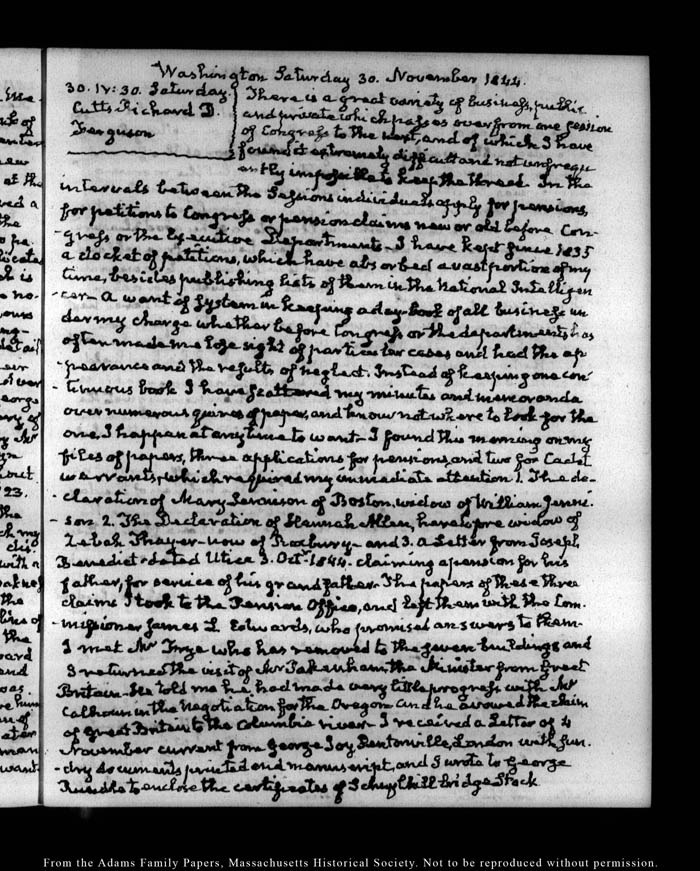 Washington Saturday 30. November 1844.
30. IV:30. Saturday.
Cutts Richard D.
Ferguson
There is a great variety of business, public
and private which passes over from one session
of Congress to the next, and of which I have
found it extremely difficult and not unfrequ
ently impossible to keep the thread. In the
intervals between the Sessions individuals apply for pensions,
for petitions to Congress or pension claims new or old before Con-
-gress or the Executive Departments. I have kept since 1835
a docket of petitions, which have absorbed a vast portion of my
time, besides publishing lists of them in the National Intelligen
-cer— A want of system in keeping a day-book of all business un
der my charge whether before Congress or the departments has
often made me lose sight of particular cases and had the ap
-pearance and the results of neglect. Instead of keeping one con-
-tinuous book I have scattered my minutes and memoranda
over numerous quires of paper, and know not where to look for the
one, I happen at any time to want— I found this morning on my
files of papers, three applications for pensions, and two for Cadet
warrants, which required my immediate attention 1. The de-
-claration of Mary of Boston, widow of William
-son 2. The Declaration of Hannah Allen, heretofore widow of
Zebah Thayer— now of Roxbury— and 3. a Letter from Joseph
Benedict— dated Utica 3. Octr. 1844. claiming a pension for his
father, for service of his grandfather. The papers of these three
claims I took to the Pension Office, and left them with the Com-
-missioner James L Edwards, who promised answers to them—
I met Mr Frye who has removed to the seven buildings and
I returned the visit of Mr Pakenham the Minister from Great
Britain— He told me he had made very little progress with Mr
Calhoun in the negotiation for the Oregon and he avowed the claim
of Great Britain to the Columbia river— I received a Letter of 4
November current from George Joy, Pentonville, London with sun-
-dry documents printed and manuscript, and I wrote to George
to enclose the certificates of Schuylkill bridge Stock
From the Adams Family Papers, Massachusetts Historical Society. Not to be reproduced without permission.